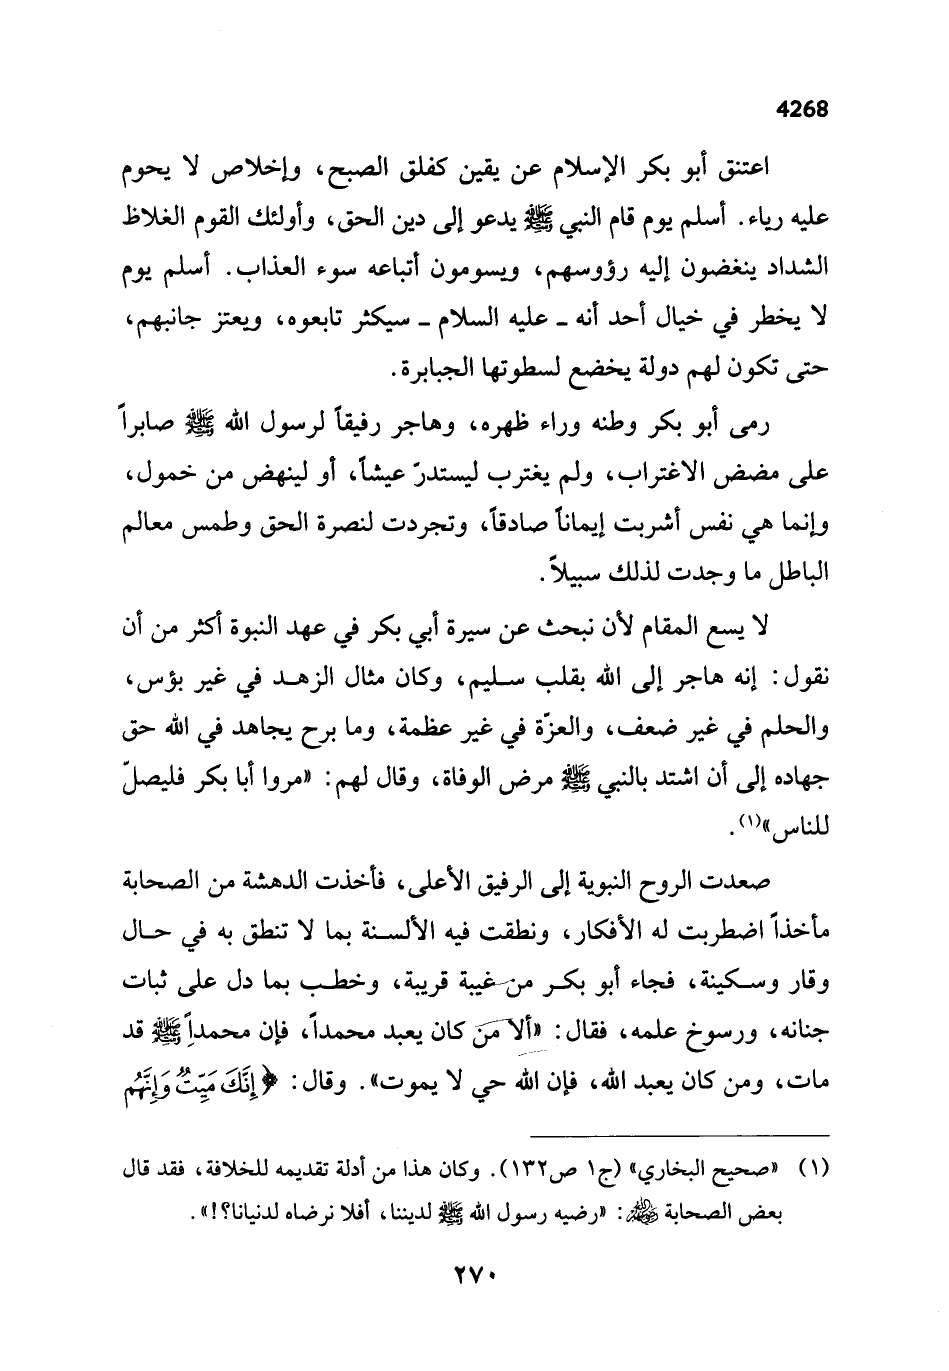 4268
اعتنق أبو بكر الإسلام عن يقين كفلق الصبح، وإخلاص لا يحوم
عليه رياء. أسلم يوم قام النبي ﷺ يدعو إلى دين الحق، وأولئك القوم الغلاظ
الشداد ينغضون إليه رؤوسهم، ويسومون أتباعه سوء العذاب. أسلم يوم
لا يخطر في خيال أحد أنه ـ عليه السلام ـ سيكثر تابعوه، ويعتز جانبهم،
حتى تكون لهم دولة يخضع لسطوتها الجبابرة.
رمى أبو بكر وطنه وراء ظهره، وهاجر رفيقاً لرسول الله ﷺ صابراً
على مضض الاغتراب، ولم يغترب ليستدرّ عيشاً، أو لينهض من خمول،
وإنما هي نفس أشربت إيماناً صادقاً، وتجردت لنصرة الحق وطمس معالم
الباطل ما وجدت لذلك سبيلاً.
لا يسع المقام لأن نبحث عن سيرة أبي بكر في عهد النبوة أكثر من أن
نقول: إنه هاجر إلى الله بقلب سليم، وكان مثال الزهد في غير بؤس،
والحلم في غير ضعف، والعزّة في غير عظمة، وما برح يجاهد في الله حق
جهاده إلى أن اشتد بالنبي ﷺ مرض الوفاة، وقال لهم: «مروا أبا بكر فليصلّ
للناس»(١).
صعدت الروح النبوية إلى الرفيق الأعلى، فأخذت الدهشة من الصحابة
مأخذاً اضطربت له الأفكار، ونطقت فيه الألسنة بما لا تنطق به في حال
وقار وسكينة، فجاء أبو بكر من غيبة قريبة، وخطب بما دل على ثبات
جنانه، ورسوخ علمه، فقال: «ألا من كان يعبد محمداً، فإن محمداً ﷺ قد
مات، ومن كان يعبد الله، فإن الله حي لا يموت». وقال: ﴿إِنَّكَ مَيِّتٌ وَإِنَّهُم
(١) «صحيح البخاري» (ج١ ص١٣٢). وكان هذا من أدلة تقديمه للخلافة، فقد قال
بعض الصحابة ﷺ: «رضيه رسول الله ﷺ لديننا، أفلا نرضاه لدنيانا؟!».
٢٧٠